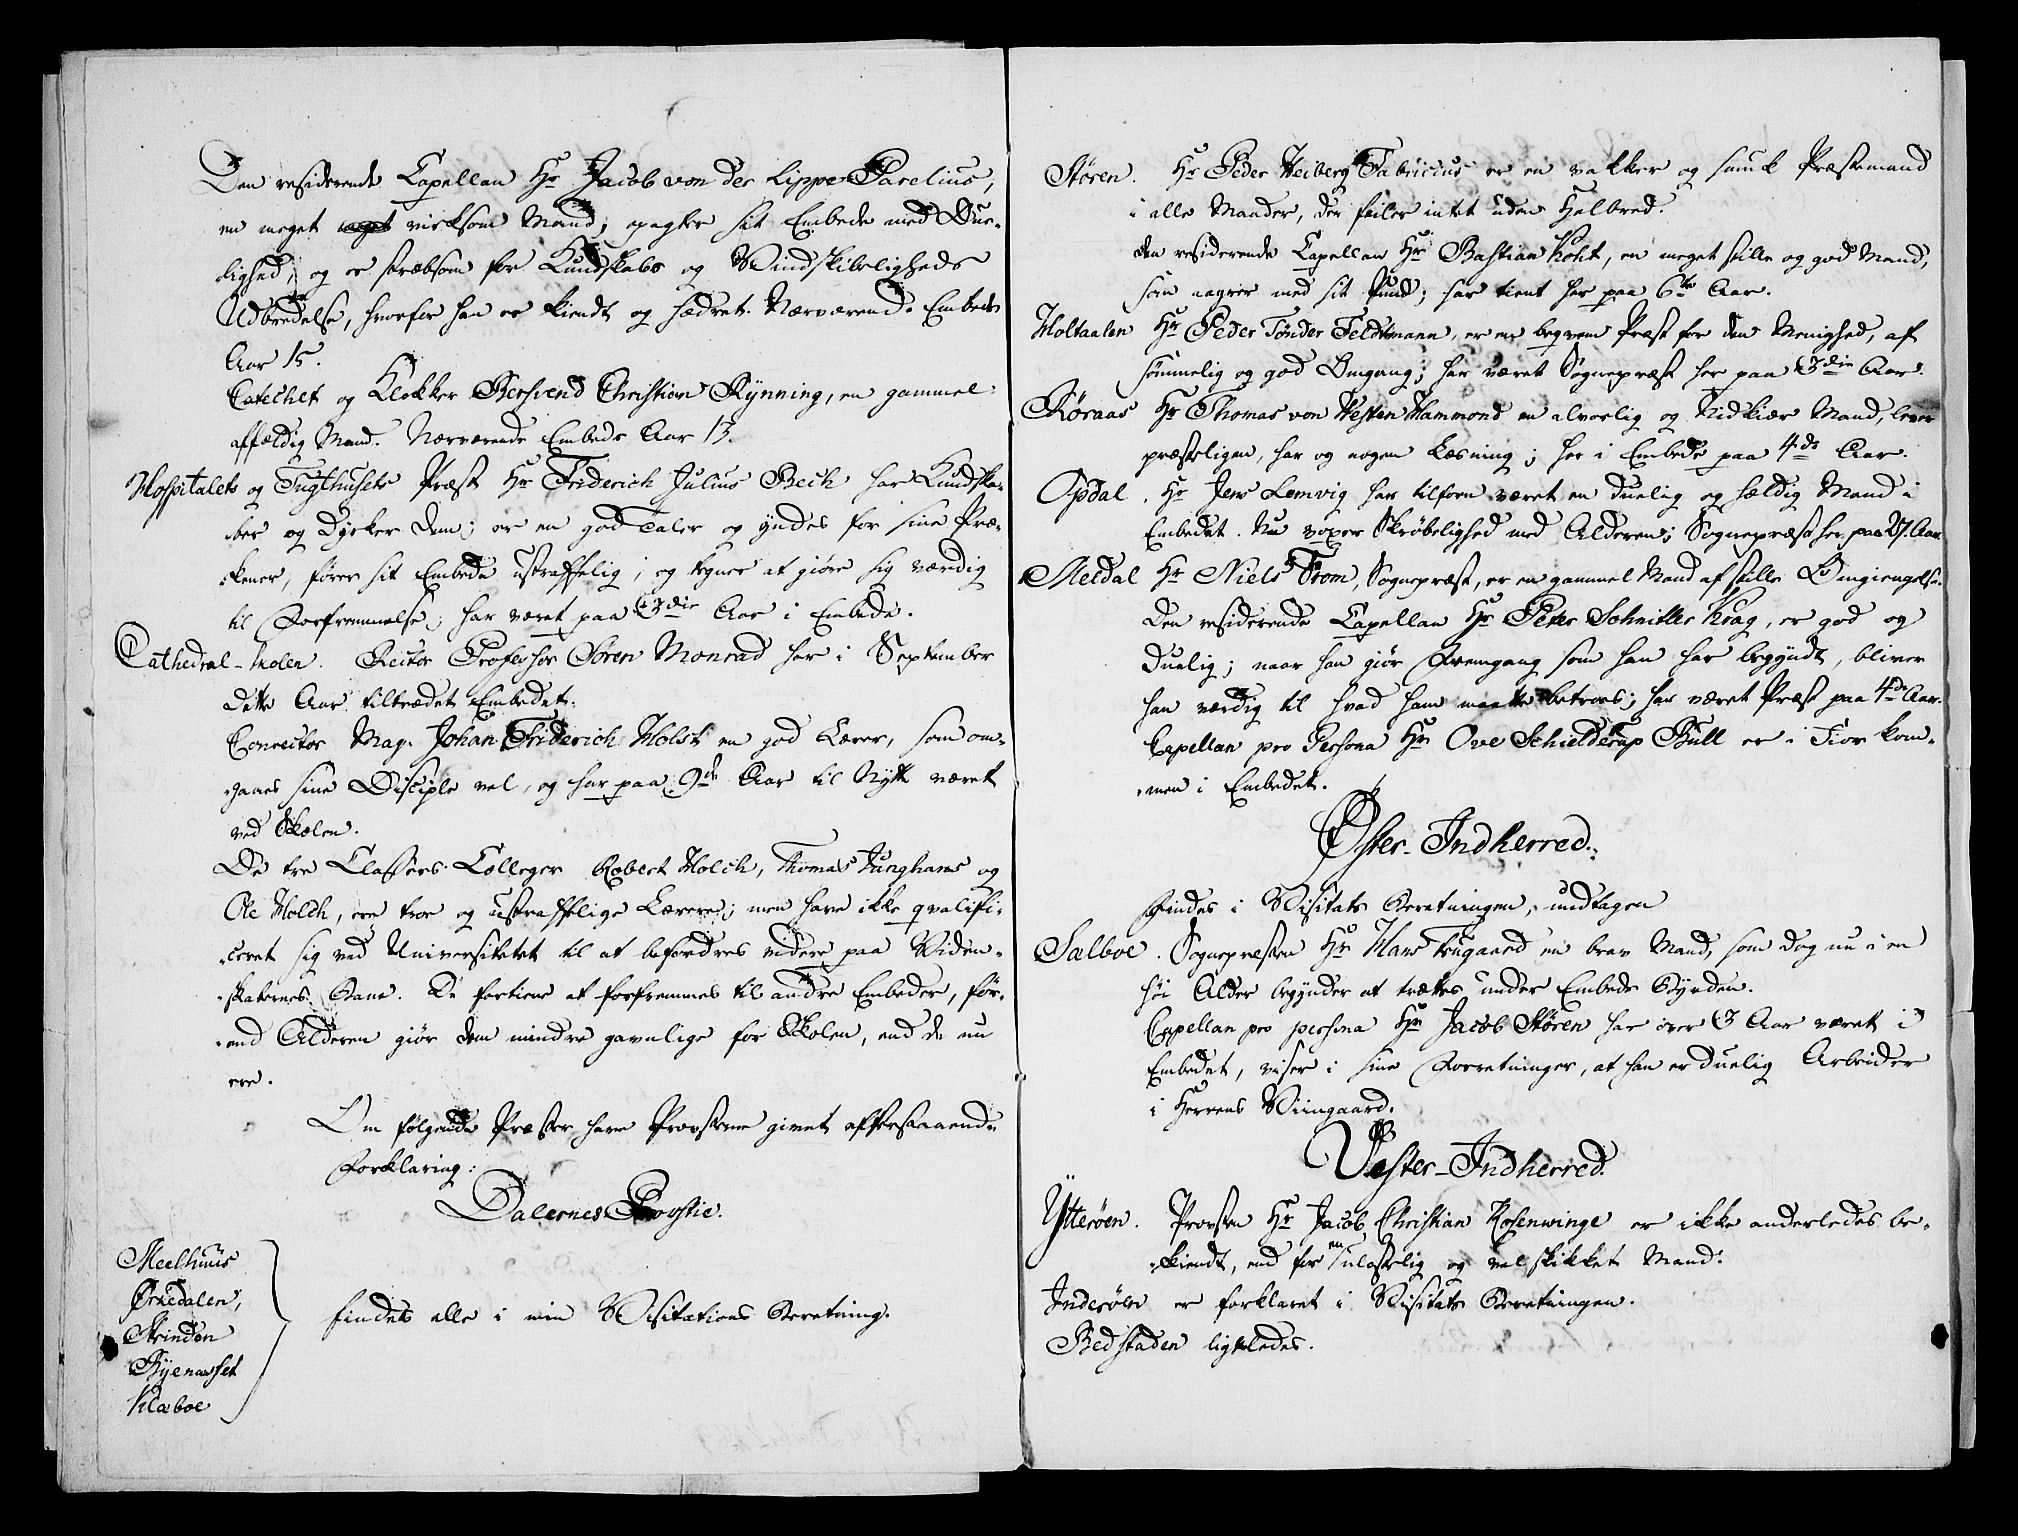 Den residerende Capellan Hr Jacob von der Lippe Parelius,
en meget virksom Mand; opagter sit Embede med Due-
lighed, og er stræbsom for Kundskabs og Vindskibeligheds
Udbredelse, hvorfor han er kiendt og hædret. Nærværende Embeds
Aar 15.
Catechet og Klokker Bersvend Christian Rynning, en gammel
affældig Mand. Nærværende Embeds Aar 13.
Hospitalets og Tugthusets Præst Hr Friderich Julius Bech har Kundska-
ber og Dyrker dem; er en god Taler og yndes for sine Præ-
kener, fører sit Embede ustraffelig; og tegner at giøre sig værdig
til Forfremmelse, har været paa 3die Aar i Embede.
Cathedral-skolen. Rector Professor Søren Monrad har i September
dette Aar tiltrædet Embedet.
Conrector Mag. Johan Friderich Holst en god Lærer, som om-
gaaes sine Disciple vel, og har paa 9de Aar til Nytte været
ved Skolen.
De tre Classers Colleger Robert Holch, Thomas Junghans og
Ole Holch, ere troe og ustraffelige Lærere; men have ikke qvalifi-
ceret sig ved Universitetet til at befordres videre paa Viden-
skabernes Bane. De fortiene at forfremmes til andre Embeder, før-
end Alderen giør dem mindre gavnlige for Skolen, end de nu
ere.
Om følgende Præster have Provsterne givet efterstaaende
Forklaring:
Dalernes Provstie.
Meelhuus
Ørkedalen,
Strinden
Byenæsset
Klæboe
findes alle i min Visitations Beretning.
Støren. Hr Peder Heiberg Fabricius er en vakker og smuk Præstemand
i alle Maader, der feiler intet uden Helbred.
den residerende Capellan Hr Bastian Koht, en meget stille og god Mand,
som aagrer med sit Pund; har tient her paa 6te Aar.
Holtaalen Hr Peder Tønder Feldtmann, er en beqvem Præst for den Menighed, af
sømmelig og god Omgang; har været Sognepræst her paa 3die Aar.
Røraas Hr Thomas von Westen Hammond en alvorlig og Nidkiær Mand, lever
præsteligen, har og nogen Læsning; her i Embede paa 4de Aar.
Opdal. Hr Jens Lemvig har tilforn været en duelig og hældig Mand i
Embedet. Nu voxer Skrøbelighed med Alderen; Sognepræst her paa Aar.
Meldal Hr Niels From, Sognepræst, er en gammel Mand af stille Omgiengelse.
Den residerende Capellan Hr Peter Schnitler Krag, er god og
duelig; naar han giør Fremgang som han har begyndt, bliver
han værdig til hvad ham maatte betroes; har været Præst paa 4de Aar.
Capellan pro Persona Hr Ove Schielderup Bull er i Fior kom-
men i Embedet.
Øster-Indherred.
Findes i Visitats Beretningen, undtagen
Sælboe. Sognepræsten Hr Hans Trugaard en brav Mand, som dog nu i en
høi Alder begynder at trættes under Embeds Byrden.
Capellan pro persona Hr Jacob Støren har over 3 Aar været i
Embedet, viser i sine Forretninger, at han er duelig Arbeider
i Herrens Viingaard.
Vester-Indherred.
Ytterøen. Provsten Hr Jacob Christian Rosenvinge er ikke anderledes be-
kiendt, end for en ulastelig og vel skikket Mand.
Inderøen er forklaret i Visitats Beretningen.
Bedstaden ligeledes.